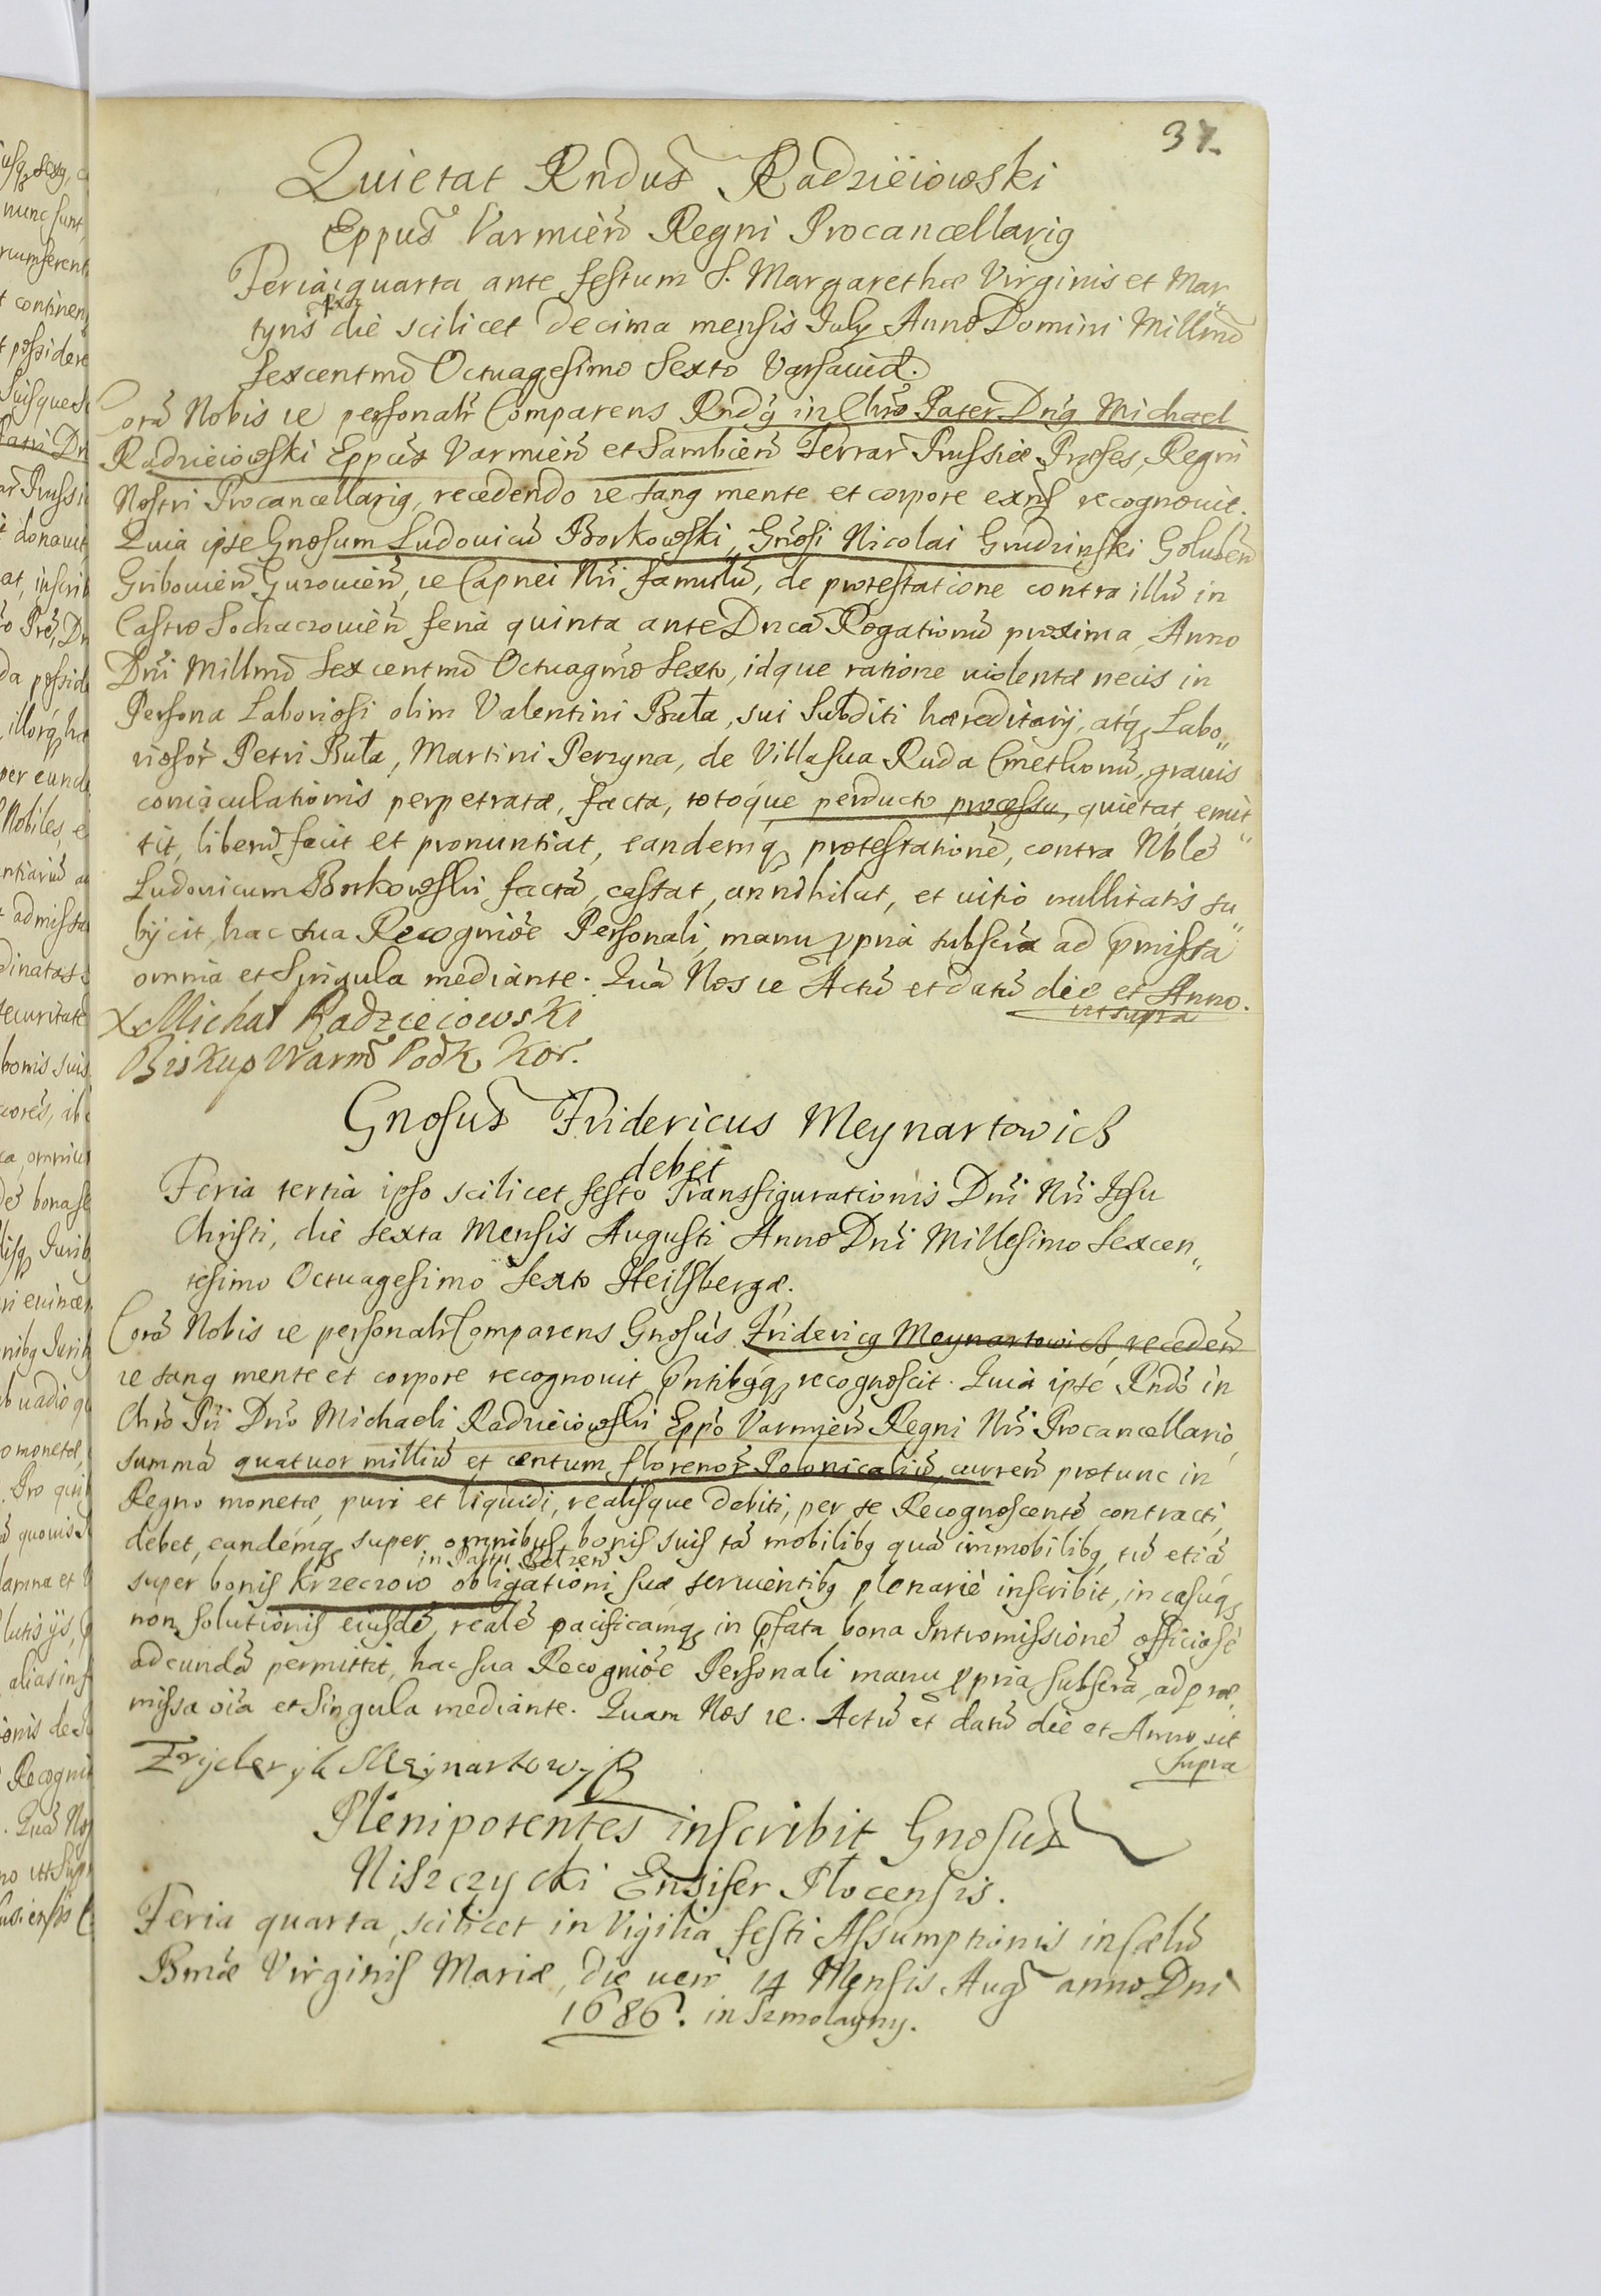 37.
Quietat Rndus Radzieiowski
Eppus Varmien Regni Procancellarig
Feria quarta ante festum S. Margarethæ Virginis et Mar"
tyris pxa die scilicet decima mensis July Anno Domini Millmo
sexcentmo Octuagesimo Sexto Varsaviæ.
Corã Nobis ꝛc personalr Comparens Rndg in Chro Pater Dng Michael
Radzieiowski Eppus Varmien et Sambien Terrar Prussiæ Præses, Regni
Nostri Procancellarig, recedendo ꝛc sang mente et corpore exns recognovit.
Quia ipse Gnosum Ludovicũ Borkowski, Gnosi Nicolai Grudzinski Goluben
Gribovien Guzovien, ꝛc Capnei Nri famulũ, de protestatione contra illũ in
Castro Sochaczovien feria quinta ante Dncã Rogationũ proxima, Anno
Dni Millmo Sexcentmo Octuagmo Sexto, idque ratione violentæ necis in
Persona Laboriosi olim Valentini Buła, sui Subditi hæreditarij, atq Labo"
riosor Petri Buła, Martini Perzyna, de Villa sua Ruda Cmethonũ, gravis
conuaculationis perpetratæ, facta, totoque perducto processu, quietat, emit"
tit, liberũ facit et pronuntiat, eandemq protestationẽ, contra Nblẽ
Ludovicum Borkowski factã, cassat, annihilat, et vitio nullitatis su"
bijcit, hac sua Recognioe Personali, manu ppria subscra ad pmissa
omnia et Singula mediante. Quã Nos ꝛc Actũ et datũ die et Anno.
ut supra
X Michał Radzieiowski
Biskup Warm Podk Kor.
Gnosus Fridericus Meynartowicz
debet
Feria tertia ipso scilicet festo Transfigurationis Dni Nri Jesu
Christi, die sexta Mensis Augusti Anno Dni Millesimo Sexcen"
tesimo Octuagesimo Sexto Heilsbergæ.
Corã Nobis ꝛc personalr Comparens Gnosus Fridericg Meynartowicz receden
ꝛc sang mente et corpore recognovit pntibgq recognoscit. Quia ipse Rndo in
Chro Pri Dno Michaeli Radzieiowski Eppo Varmien Regni Nri Procancellario,
summã quatuor milliũ et centum florenor Polonicaliũ, curren protunc in
Regno monetæ, puri et liquidi, realisque debiti, per se Recognoscentẽ contracti,
debet, eandemq super omnibus bonis suis tã mobilibg quã immobilibg, tũ etiã
super bonis Krzeczowo in Pattu Belzen obligationi suæ servientibg plenariè inscribit, in casuq
non solutionis eiusdẽ, realẽ pacificamq in pfata bona Intromissionẽ officiosè
adeundã permittit, hac sua Recognioe Personali manu ppria subscra, ad præ"
missa oia et Singula mediante. Quam Nos ꝛc. Actũ et datũ die et Anno ut
supra
Fryderyk Meynartowicz
Plenipotentes inscribit Gnosus
Niszczycki Ensifer Plocensis.
Feria quarta, scilicet in Vigilia festi Assumptionis in Cælũ
Bmæ Virginis Mariæ, die vero 14 Mensis Aug anno Dni
1686. in Szmolayny.